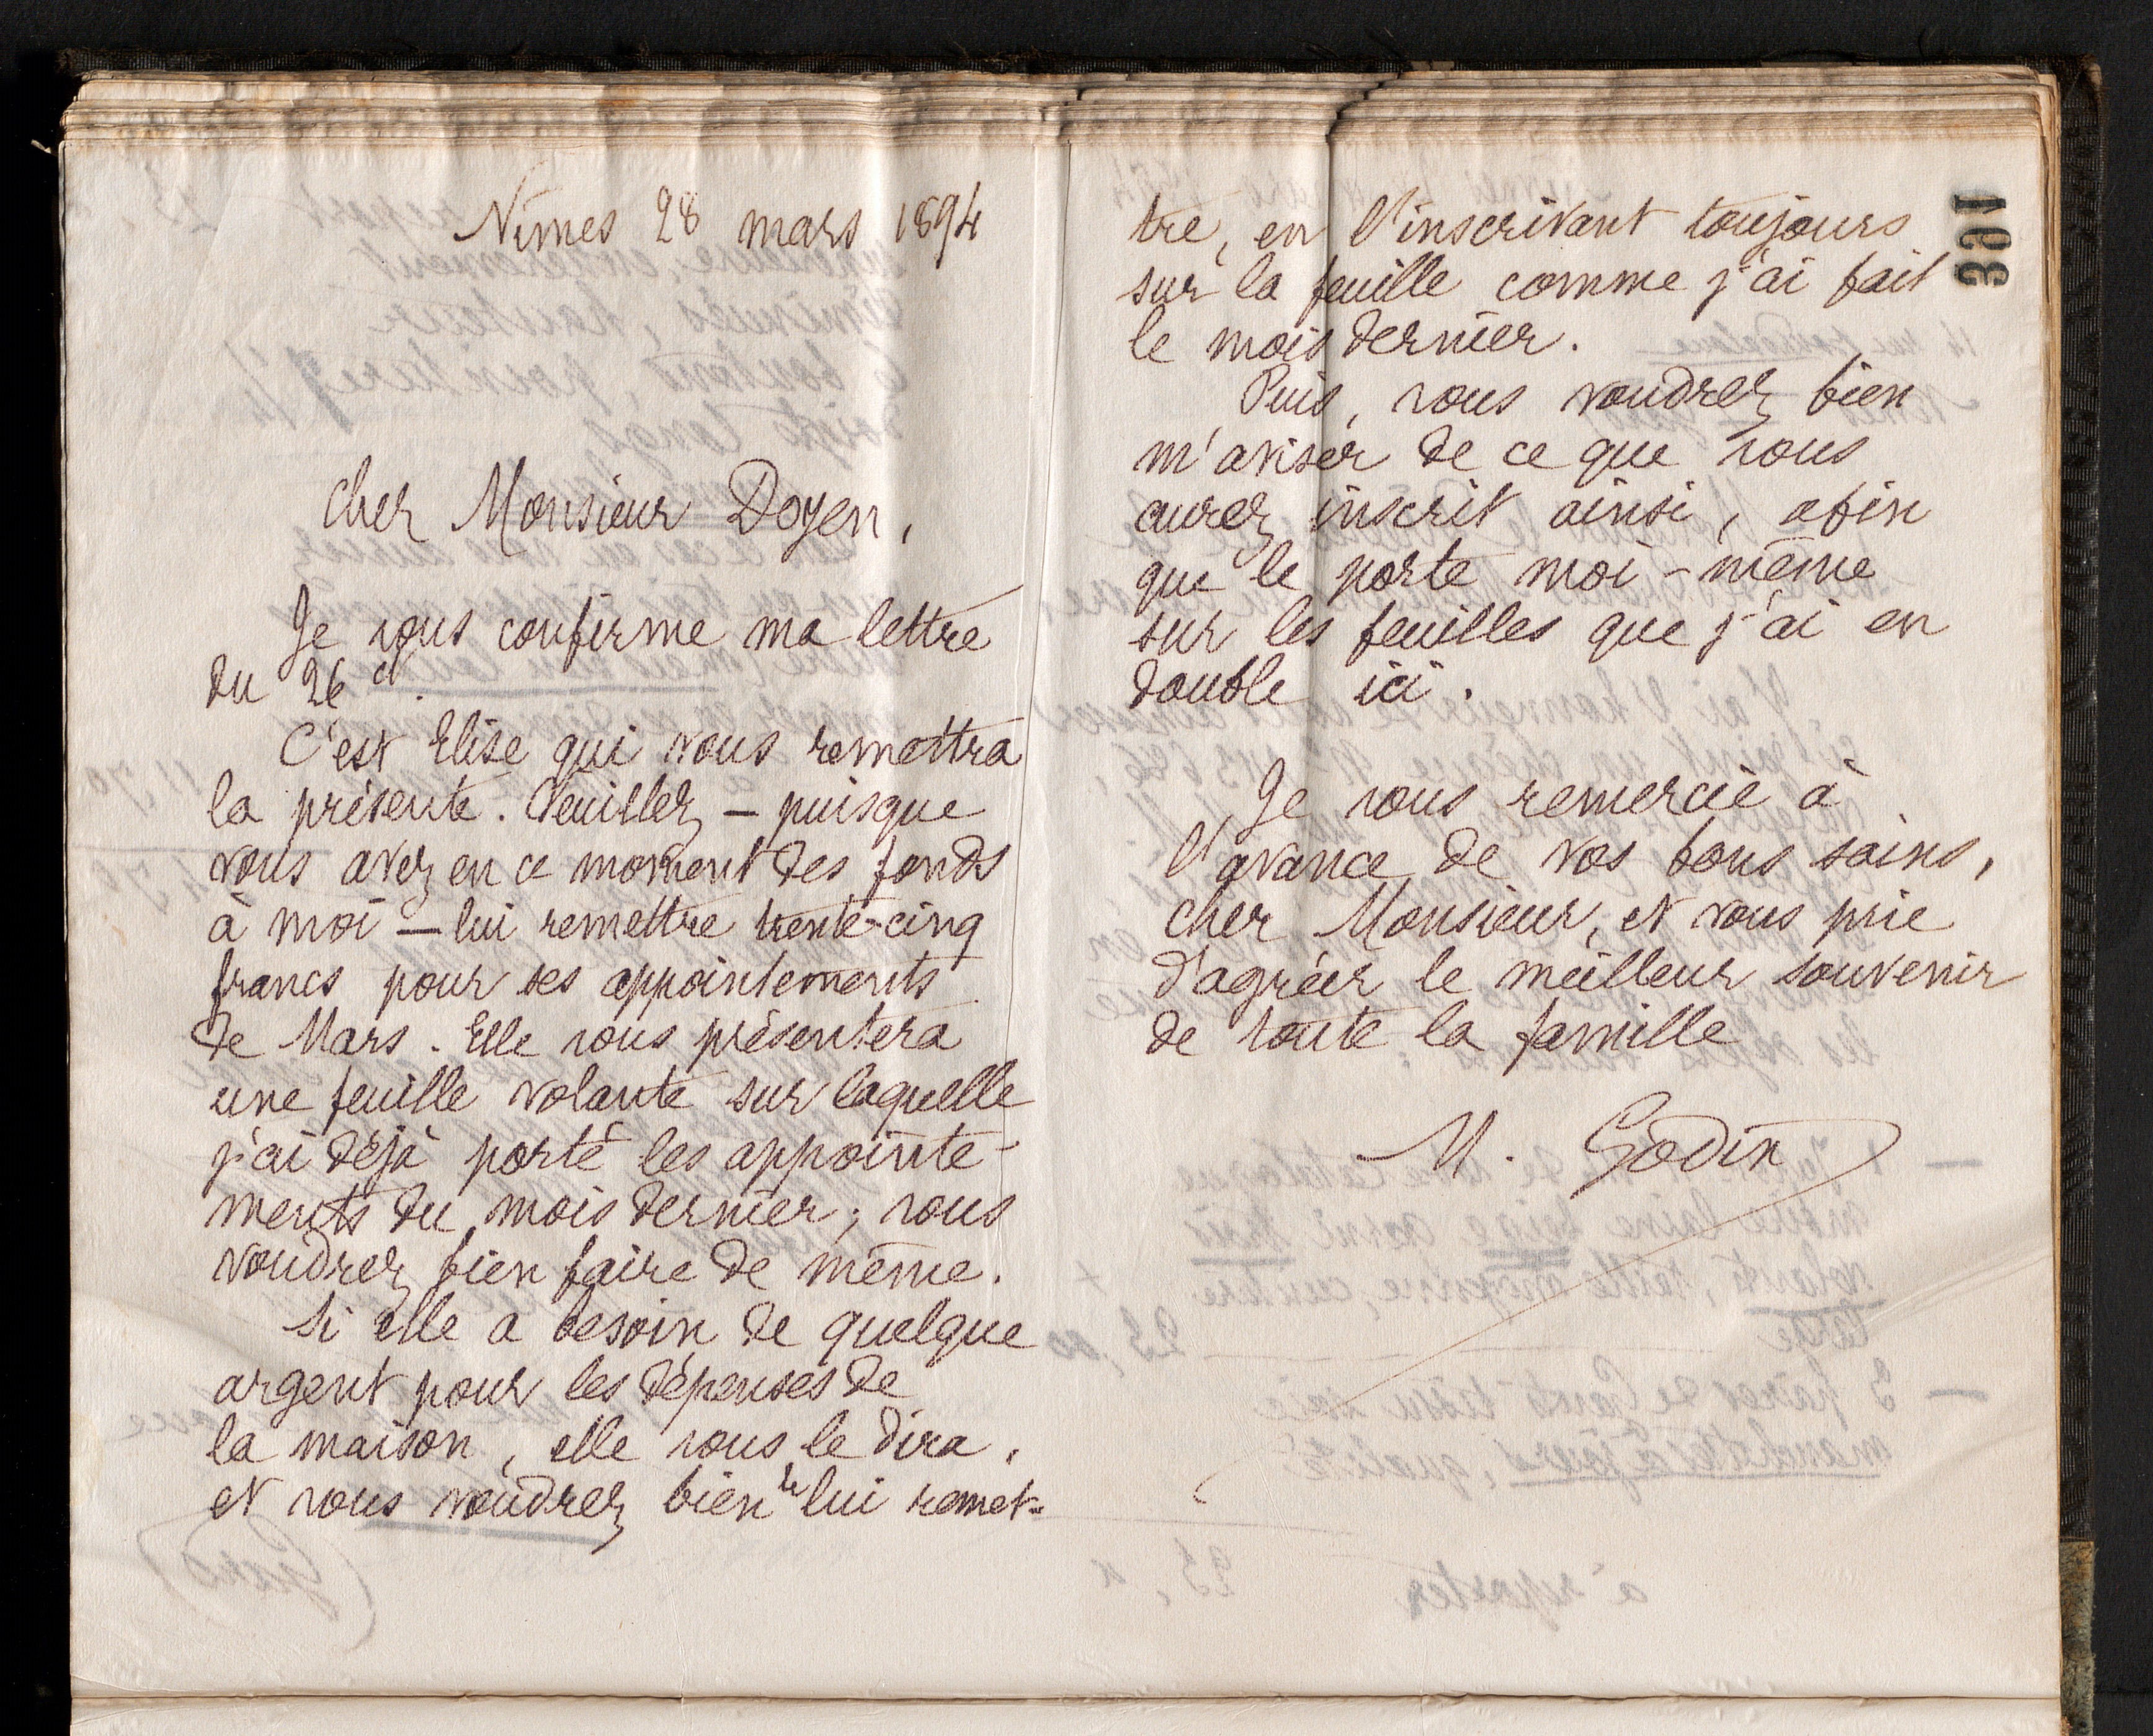 Nîmes 28 mars 1894
Cher Monsieur Doyen,
Je vous confirme ma lettre
du 26 ct.
C'est Elise qui vous remettra
la présente. Veuillez — puisque
vous avez en ce moment des fonds
à moi — lui remettre trente-cinq
francs pour ses appointements
de Mars. Elle vous présentera
une feuille volante sur laquelle
j'ai déjà porté les appointe-
ments du mois dernier; vous
voudrez bien faire de même.
Si elle a besoin de quelque
argent pour les dépenses de
la maison, elle vous le dira,
et vous voudrez bien le lui remet=
tre, en l'inscrivant toujours
sur la feuille comme j'ai fait
le mois dernier.
Puis, vous voudrez bien
m'aviser de ce que vous
aurez inscrit ainsi, afin
que le porte moi-même
sur les feuilles que j'ai en
double ici.
Je vous remercie à
l'avance de vos bons soins,
cher Monsieur, et vous prie
d'agréer le meilleur souvenir
de toute la famille
M. Godin
301